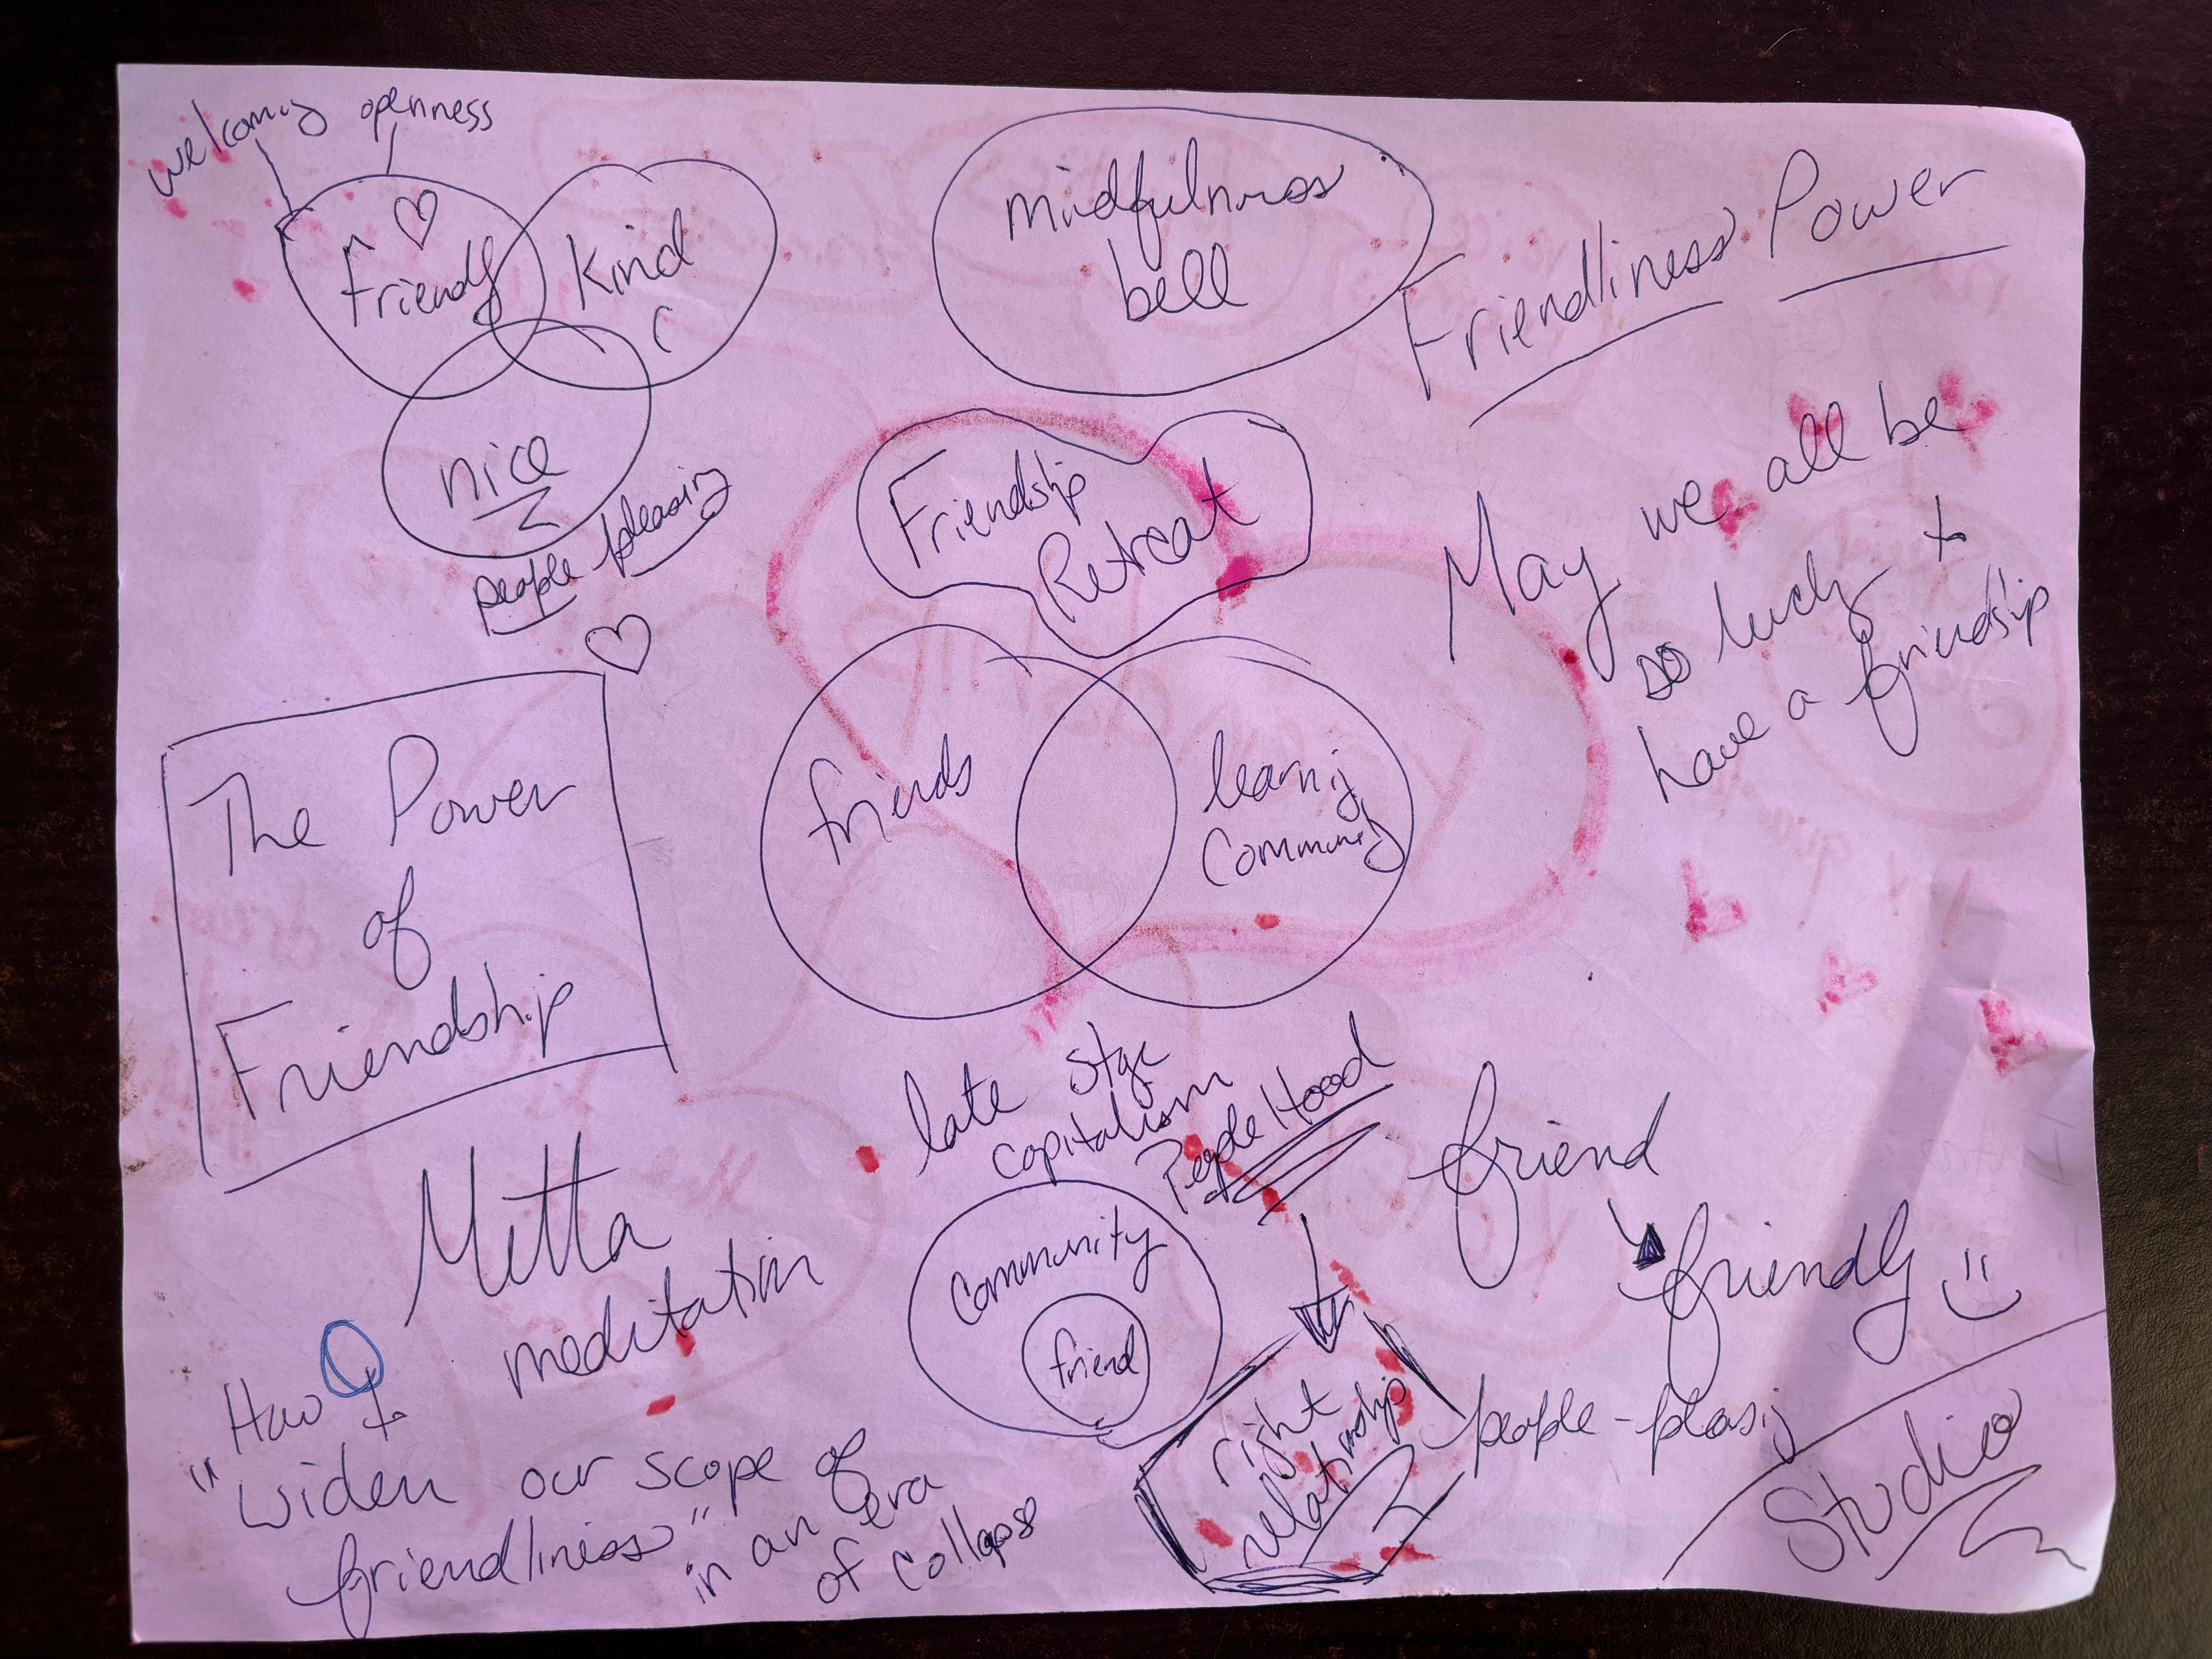 welcoming openness
Friendly
Kind
nice
people pleasing
mindfulness
bell
Friendliness Power
Friendship
Retreat
May we all be
so lucky +
have a friendship
The Power
of
Friendship
friends
learnig
Community
late stge
capitalism
People Hood
Community
friend
right
relationship
friend
friendly
people-pleasig
Studio
Metta
meditation
"How to
widen our scope of
friendliness"
in an era
of collapse